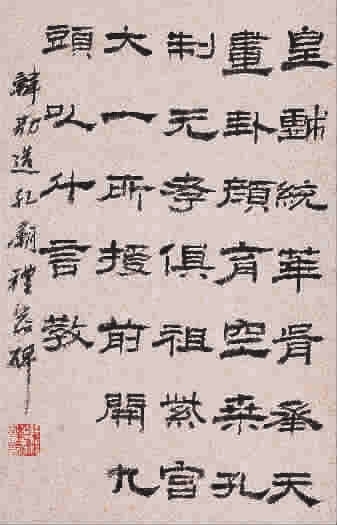 皇戲統華胥承天
畫卦顏育空桑孔
制元孝俱祖紫宮
大一所授前闓九
頭以什言教
韓勑造孔廟禮器碑